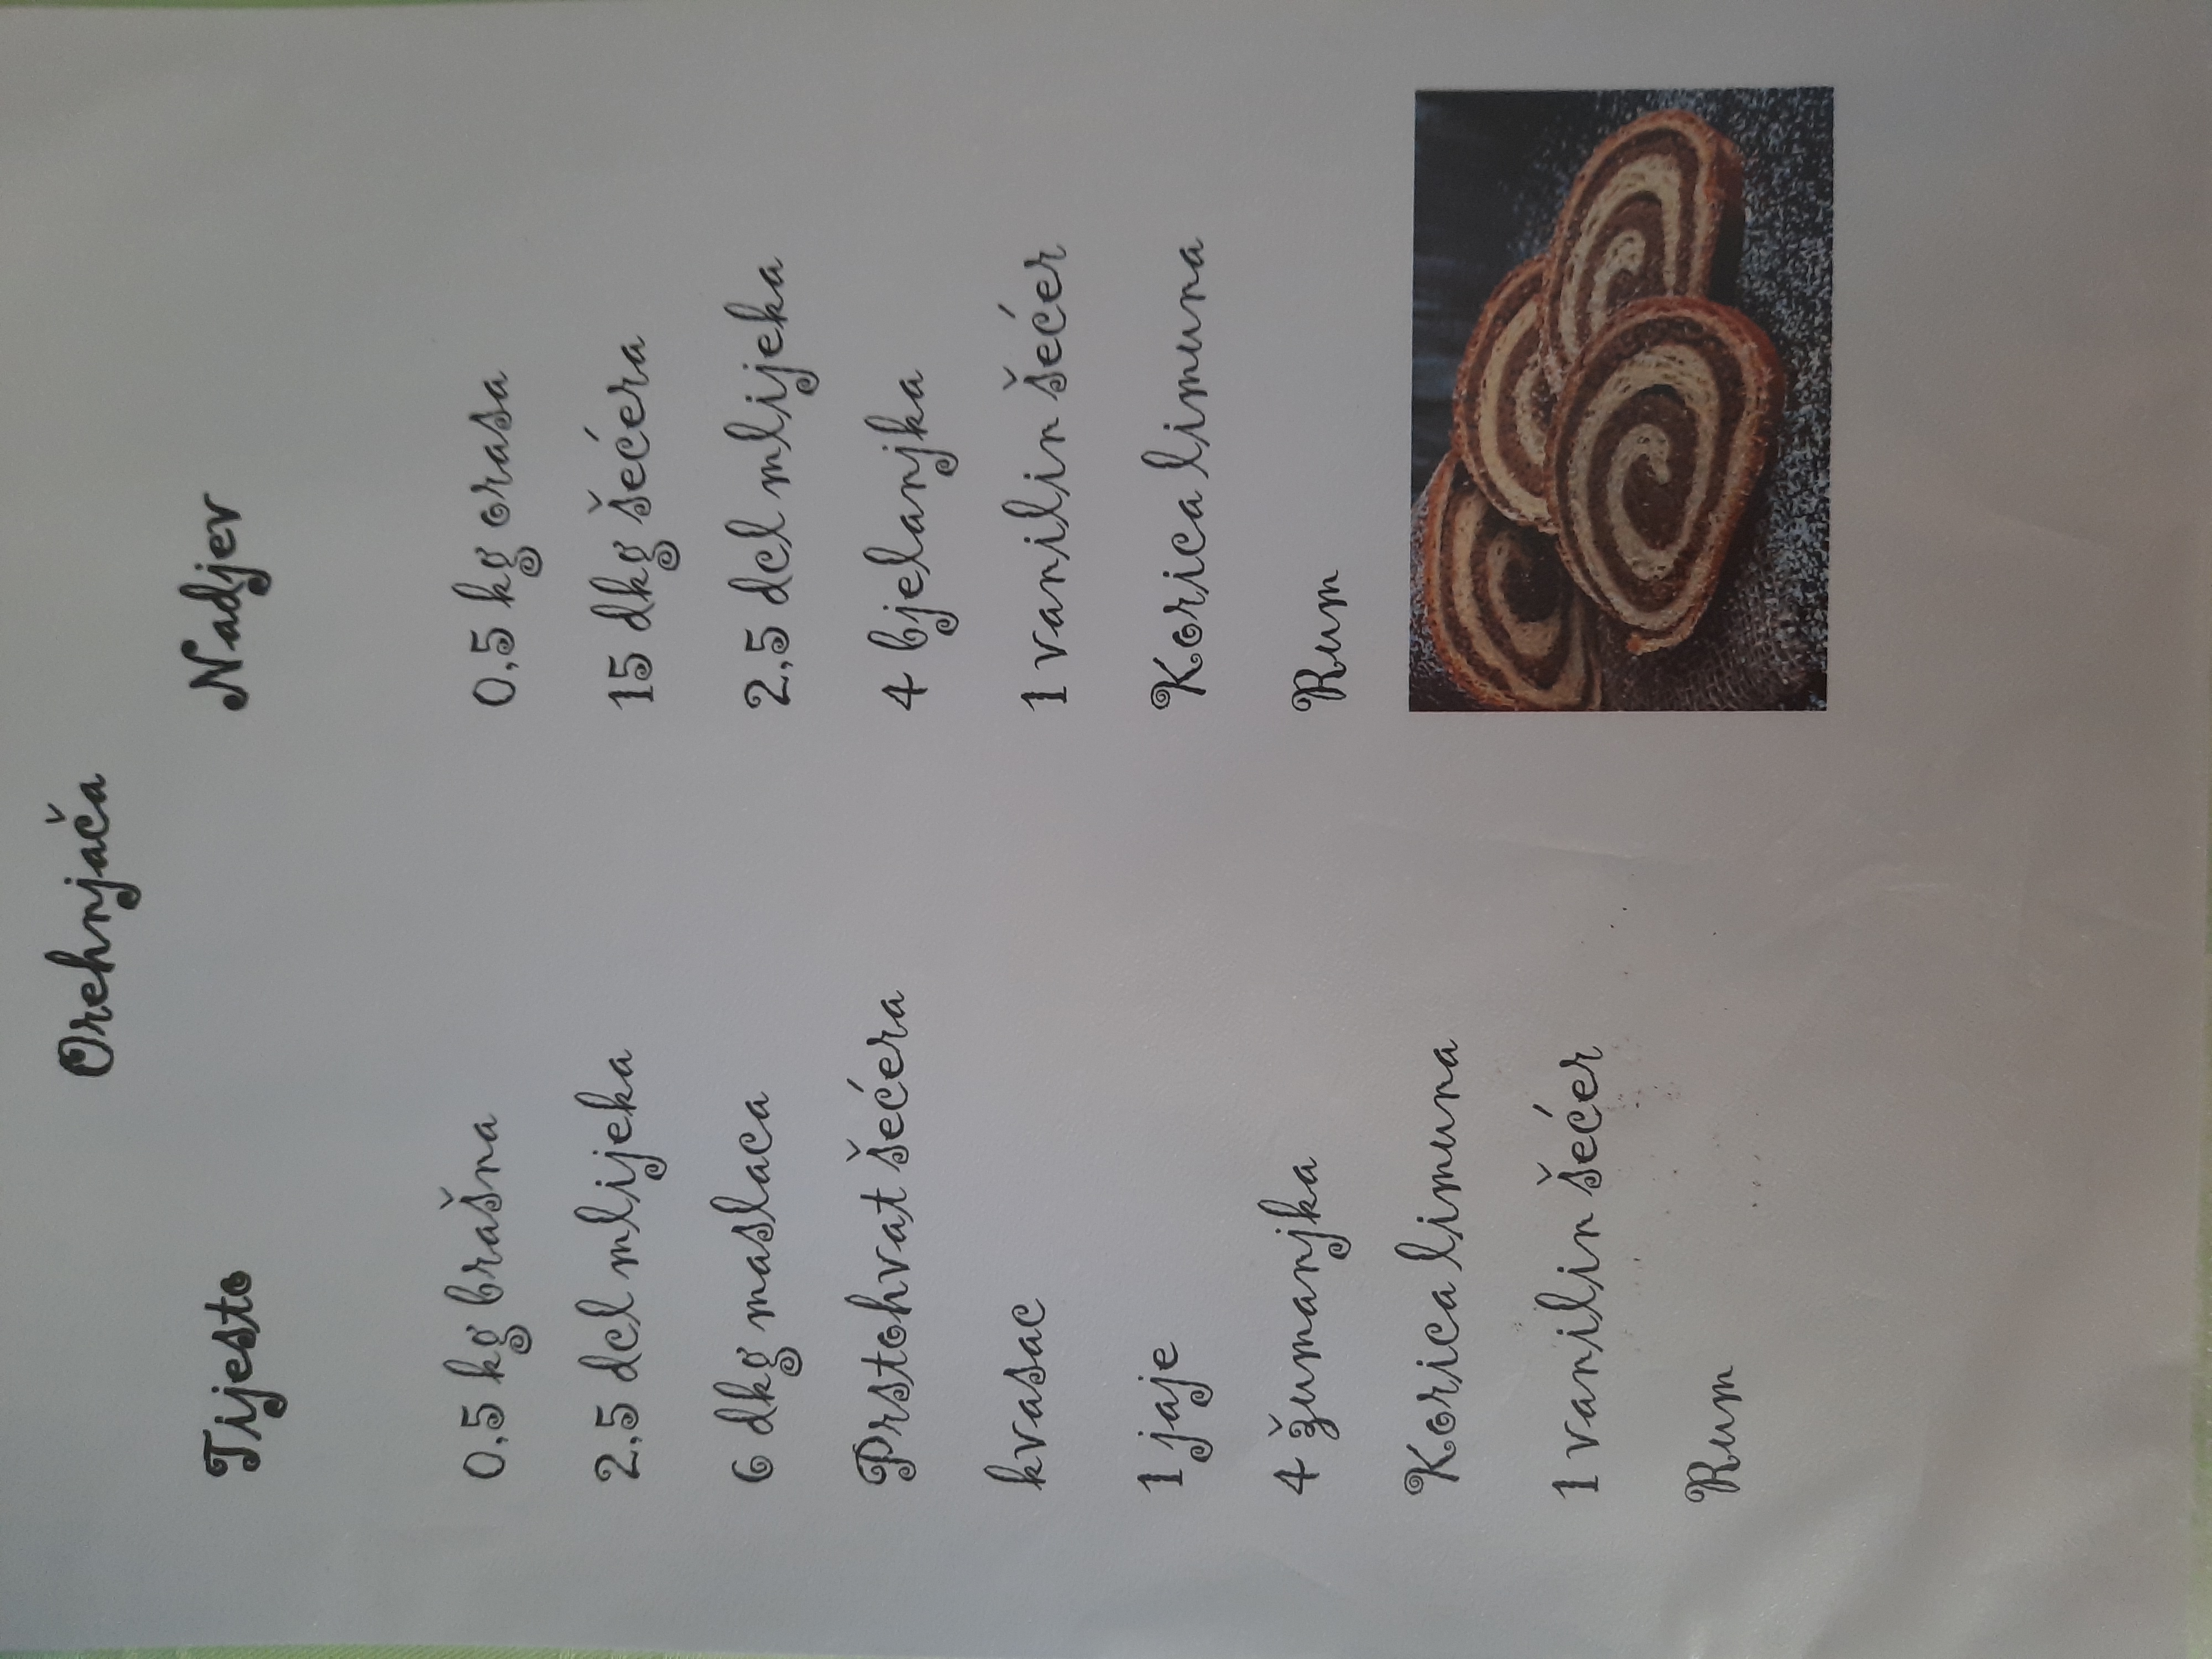 Orehnjača
Tijesto
0,5 kg brašna
2,5 dcl mlijeka
6 dkg maslaca
Prstohvat šećera
kvasac
1 jaje
4 žumanjka
Korica limuna
1 vanilin šećer
Rum
Nadjev
0,5 kg orasa
15 dkg šećera
2,5 dcl mlijeka
4 bjelanjka
1 vanilin šećer
Korica limuna
Rum